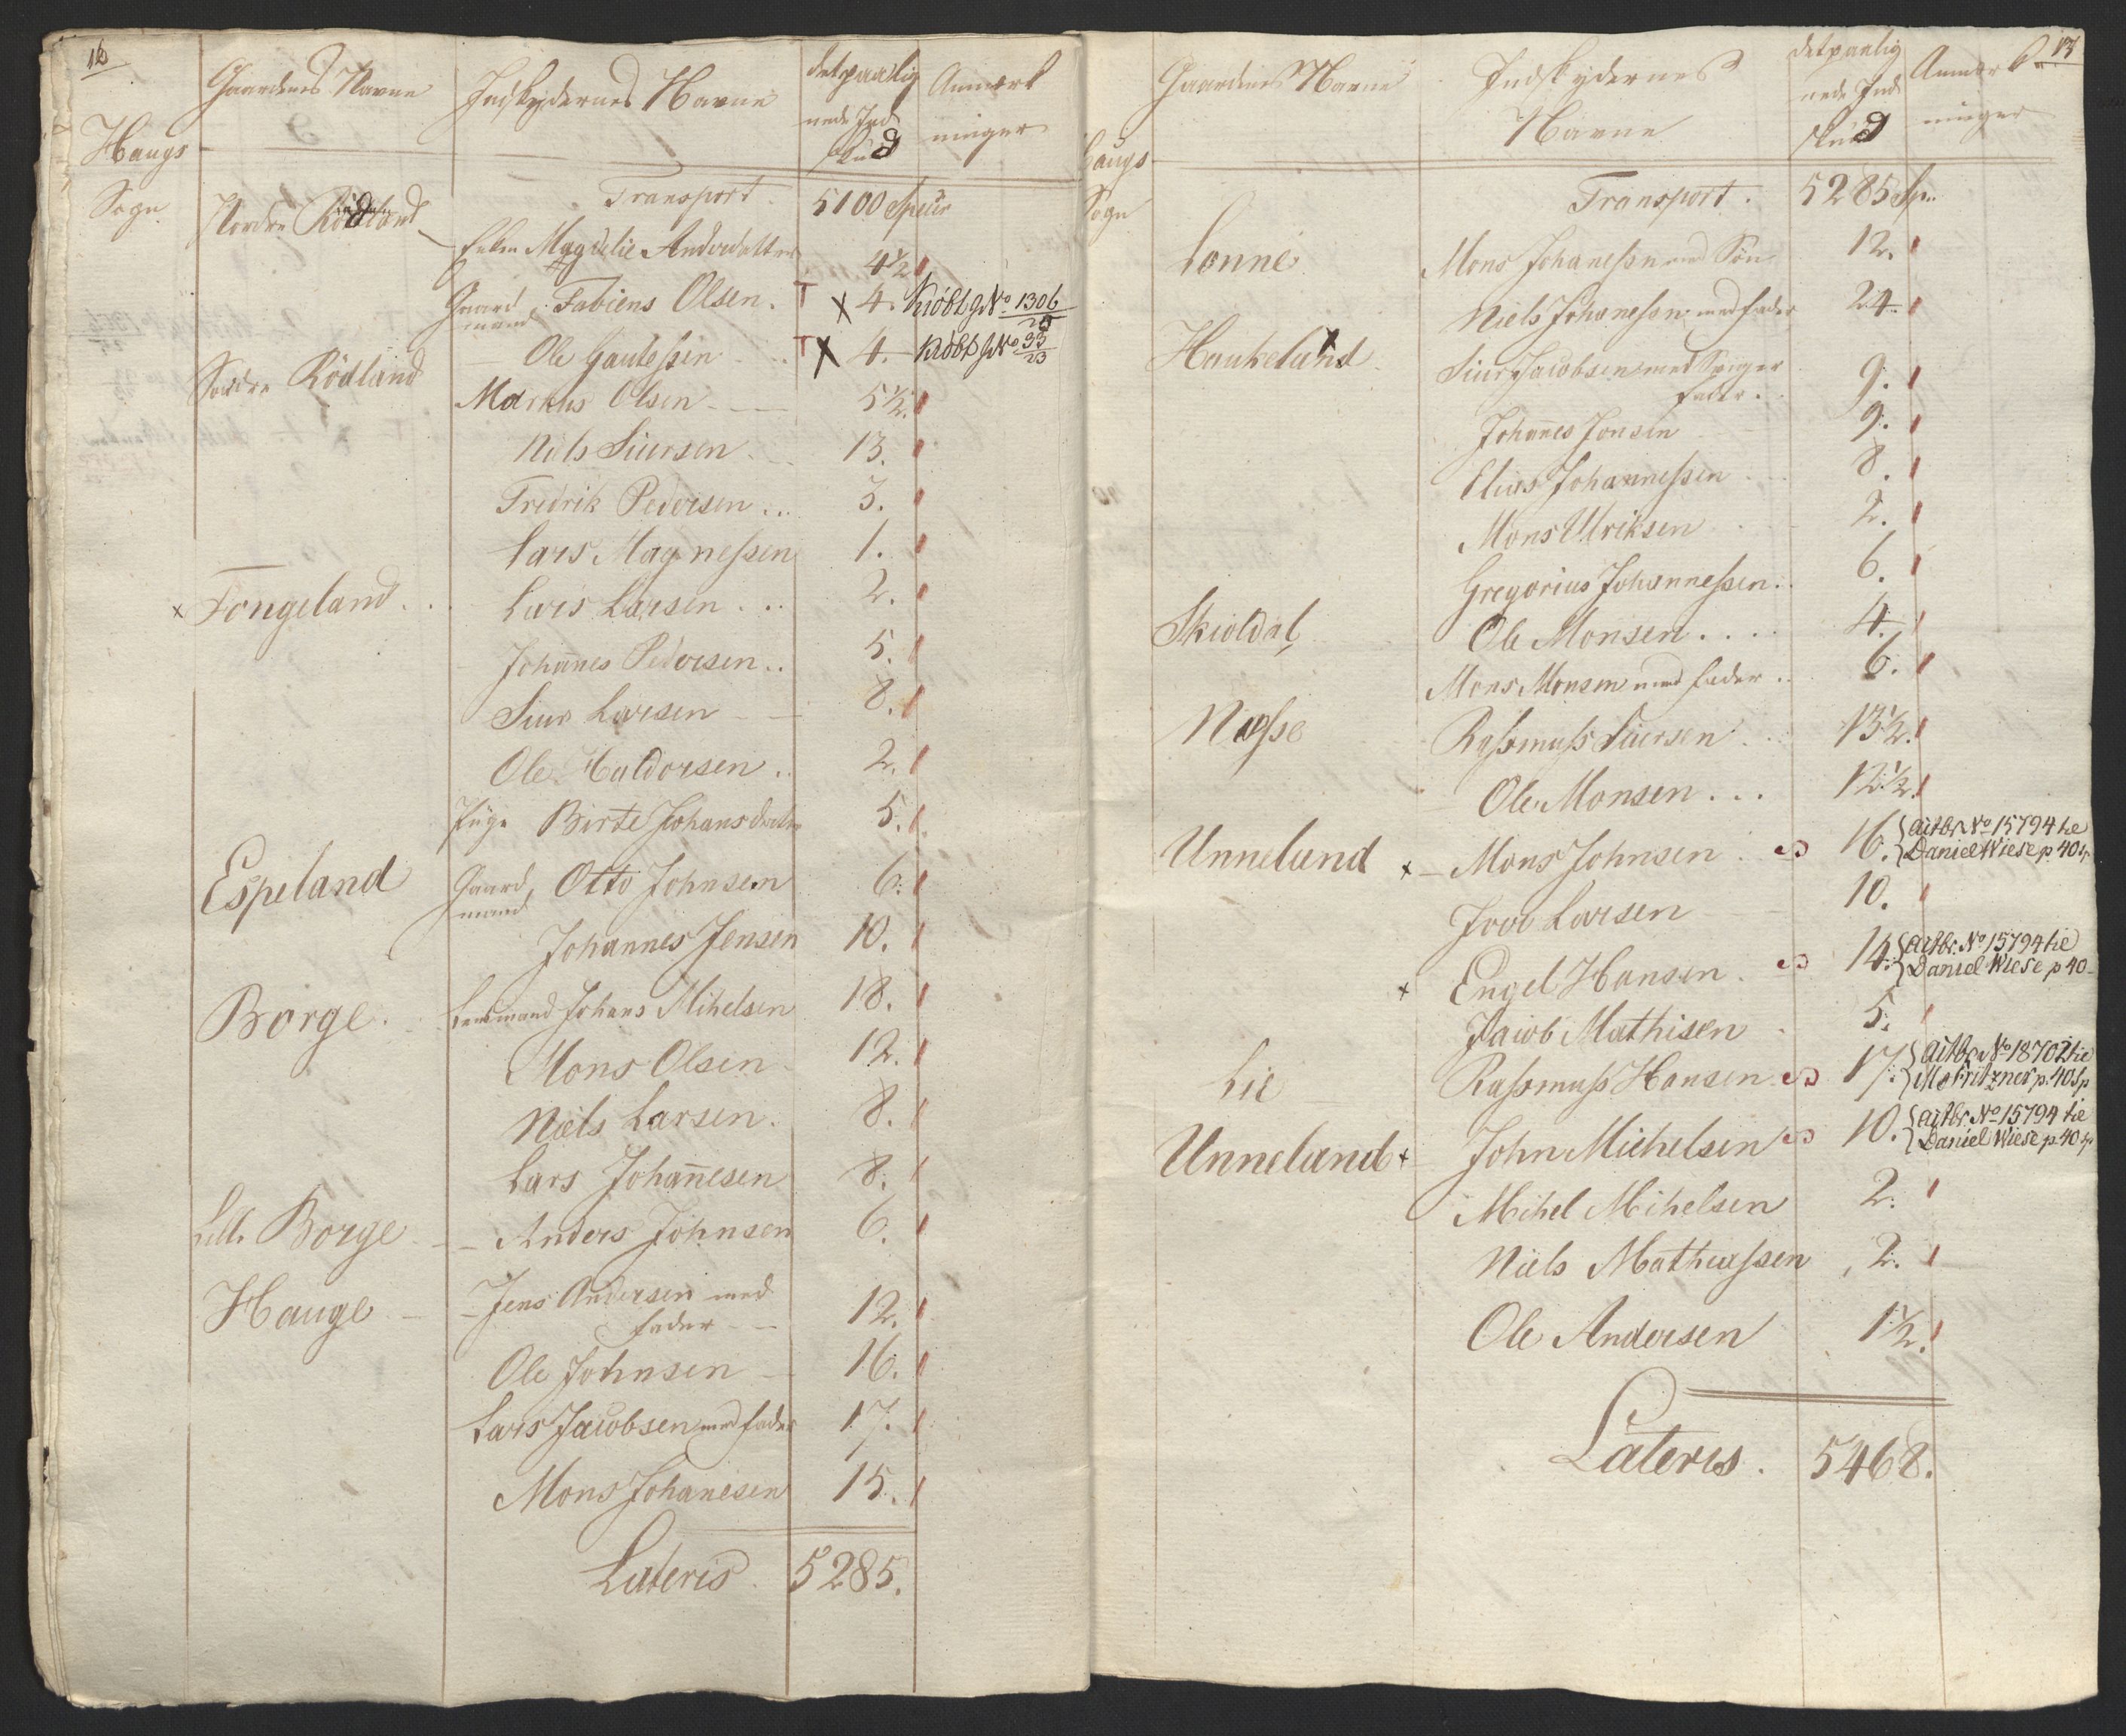 16
Gaardenes Navne
Indskydernes Navne
det paalig
nede Ind
skud
Anmærk
ninger
Haugs
Sogn
Transport. 5100 Specier
Nordre Rödland
Enken Magdelie Andersdatter 4 1/2
Gaard
mand Fabiens Olsen. T x 4. Kiöbt g No 1306
20
Ole Gautessen T x 4. Kiöbt g No 33
23
Søndre Rödland
Markus Olsen 5 1/2.
Niels Siursen 13.
Fredrik Pedersen .. 3.
Lars Magnessen 1.
x Fongeland . . Lars Larsen . . . 2.
Johannes Pedersen .. 5.
Siur Larsen 8.
Ole Haldorsen .. 2.
Pige Birte Johansdatter 5.
Espeland Gaard
mand Otto Johnsen 6.
Johannes Jensen 10.
Borge. Lensmand Johans Mihelsen 18.
Mons Olsen 12.
Niels Larsen. 8.
Lars Johanesen 8.
Lille Borge Anders Johnsen 6.
Hauge Jens Andersen med
fader 12.
Ole Johnsen 16.
Lars Jacobsen med fader 17.
Mons Johanesen 15.
Lateris. 5285.
17
Gaardenes Navne
Indskydernes
Navne
det paalig
nede Ind
skud
Anmærk
ninger
Haugs
Sogn
Transport. 5285 Sp.
Lonne Mons Johanessen med Sön 12.
Niels Johanesen med fader 24.
Haukeland Siur Jacobsen med Sviger
fader. 9.
Johannes Jonsen 9.
Elias Johannessen 8.
Mons Ulriksen 2.
Gregorius Johannessen. 6.
Skioldal Ole Monsen . . . . 4.
Mons Monsen med fader .. 6.
Nesse Rassmuss Siursen 13 1/2.
Ole Monsen . . . 12 1/2.
Unneland x Mons Johnsen 16. { Aitbr No 15794 tie
Daniel Wiese p. 40 sp
Iver Larsen 10.
x Engel Hansen 14. { Aitbr. No 15794 tie
Daniel Wiese p 40
Jacob Mathisen 5.
Lie Rassmuss Hansen 17. { Aitbr No 18702 tie
Mo Fritzner p. 40 Sp
Unneland x John Michelsen 10. { aitbr. No 15794 tie
Daniel Wiese p. 40 sp
Mihel Mihelsen 2.
Niels Mathiassen 2.
Ole Andersen 1 1/2.
Lateris. 5468.